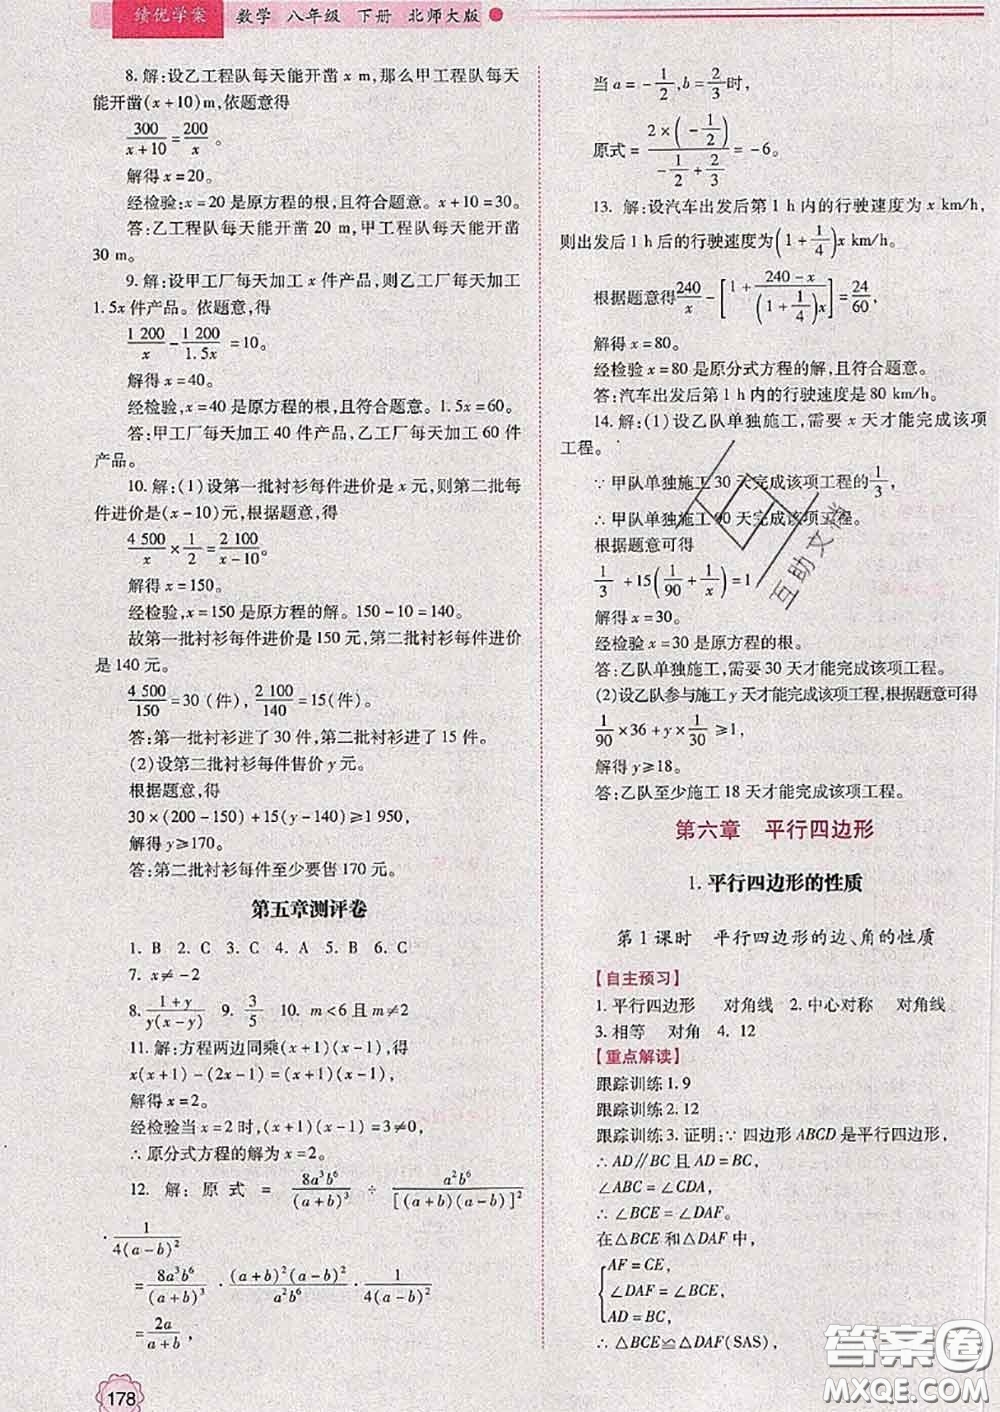 绩优学案 数学 八年级 下册 北师大版
8. 解:设乙工程队每天能开凿 x m,那么甲工程队每天
能开凿(x+10) m,依题意得
300/(x+10)=200/x。
解得 x=20。
经检验:x=20 是原方程的根,且符合题意。x+10=30。
答:乙工程队每天能开凿 20 m,甲工程队每天能开凿
30 m。
9. 解:设甲工厂每天加工 x 件产品,则乙工厂每天加工
1.5x 件产品。依题意,得
1 200/x-1 200/1.5x=10。
解得 x=40。
经检验,x=40 是原方程的根,且符合题意。1.5x=60。
答:甲工厂每天加工 40 件产品,乙工厂每天加工 60 件
产品。
10. 解:(1)设第一批衬衫每件进价是 x 元,则第二批每
件进价是(x-10)元,根据题意,得
4 500/x×1/2=2 100/(x-10)。
解得 x=150。
经检验,x=150 是原方程的解。150-10=140。
故第一批衬衫每件进价是 150 元,第二批衬衫每件进价
是 140 元。
4 500/150=30 (件),2 100/140=15(件)。
答:第一批衬衫进了 30 件,第二批衬衫进了 15 件。
(2)设第二批衬衫每件售价 y 元。
根据题意,得
30×(200-150)+15(y-140)≥1 950,
解得 y≥170。
答:第二批衬衫每件至少要售 170 元。
第五章测评卷
1. B 2. C 3. C 4. A 5. B 6. C
7. x≠-2
8. (1+y)/(y(x-y)) 9. 3/5 10. m<6 且 m≠2
11. 解:方程两边同乘(x+1)(x-1),得
x(x+1)-(2x-1)=(x+1)(x-1),
解得 x=2。
经检验当 x=2 时,(x+1)(x-1)=3≠0,
∴原分式方程的解为 x=2。
12. 解:原式=8a³b⁶/(a+b)³÷a²b⁶/[(a+b)(a-b)]²
·1/4(a-b)²
=8a³b⁶/(a+b)³·(a+b)²(a-b)²/a²b⁶·1/4(a-b)²
=2a/(a+b),
178
当 a=-1/2,b=2/3时,
原式=2×(-1/2)/(-1/2+2/3)=-6。
13. 解:设汽车出发后第 1 h 内的行驶速度为 x km/h,
则出发后 1 h 后的行驶速度为(1+1/4)x km/h。
根据题意得240/x-[1+(240-x)/((1+1/4)x)]=24/60,
解得 x=80。
经检验 x=80 是原分式方程的解,且符合题意。
答:汽车出发后第 1 h 内的行驶速度是 80 km/h。
14. 解:(1)设乙队单独施工,需要 x 天才能完成该项
工程。
∵甲队单独施工 30 天完成该项工程的1/3,
∴甲队单独施工 90 天完成该项工程。
根据题意可得
1/3+15(1/90+1/x)=1
解得 x=30。
经检验 x=30 是原方程的根。
答:乙队单独施工,需要 30 天才能完成该项工程。
(2)设乙队参与施工 y 天才能完成该项工程,根据题意可得
1/90×36+y×1/30≥1,
解得 y≥18。
答:乙队至少施工 18 天才能完成该项工程。
第六章 平行四边形
1. 平行四边形的性质
第 1 课时 平行四边形的边、角的性质
【自主预习】
1. 平行四边形 对角线 2. 中心对称 对角线
3. 相等 对角 4. 12
【重点解读】
跟踪训练 1. 9
跟踪训练 2. 12
跟踪训练 3. 证明:∵四边形 ABCD 是平行四边形,
∴AD∥BC 且 AD=BC,
∠ABC=∠CDA,
∴∠BCE=∠DAF。
在△BCE 和△DAF 中,
AF=CE,
∠DAF=∠BCE,
AD=BC,
∴△BCE≌△DAF(SAS),
互助文
答案圈
MXQE.COM